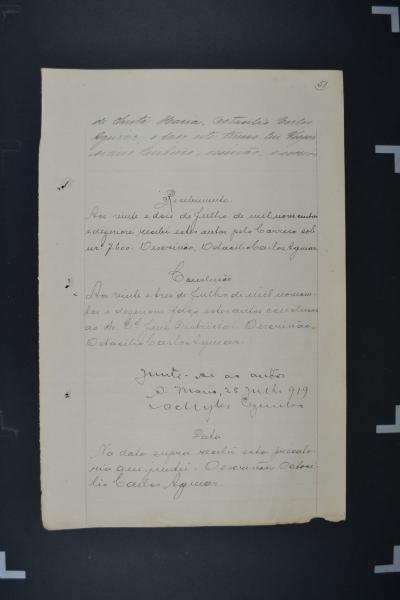 51
de Santa Maria, Octacilio Carlos
Aguiar, e faço este termo. Eu
escrivão, o escrevi
Recebimento
Aos vinte e dois de Julho de mil novecentos
e dezenove recebi estes autos pelo Correio sob
nº 7.600. O escrivão, Octacilio Carlos Aguiar
Conclusão
Aos vinte e tres de Julho de mil novecen-
tos e dezenove faço estes autos conclusos
ao Dr. Juiz Districtal. O escrivão,
Octacilio Carlos Aguiar.
Junte-se ao autos
S. Maria, 23 Julho 919
Data
Na data supra recebi esta precato-
ria que juntei. O escrivão Octaci-
lio Carlos Aguiar